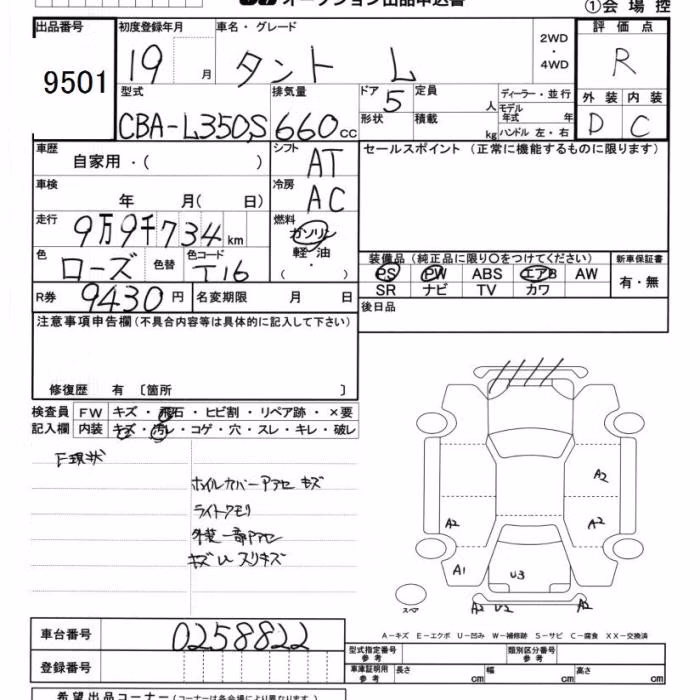 オークション出品申込書
①会場控
出品番号 初度登録年月 車名・グレード 2WD・4WD 評価点
9501 19 月 タント L R
型式 排気量 ドア 定員 ディーラー・並行 外装 内装
CBA-L350S 660cc 5 人 モデル年式 年 D C
形状 積載 kg ハンドル 左・右
車歴 自家用・( ) シフト AT セールスポイント(正常に機能するものに限ります)
車検 年 月( 日) 冷房 AC
走行 9万9千734km 燃料 ガソリン・軽油 ( ・ )
色 ローズ 色替 色コード T16
装備品(純正品に限り○をつけてください) 新車保証書
PS PW ABS エアB AW 有・無
SR ナビ TV カワ
R券 9430円 名変期限 月 日 後日品
注意事項申告欄(不具合内容等は具体的に記入して下さい)
修復歴 有〔箇所 〕
検査員記入欄 FW キズ・飛石・ヒビ割・リペア跡・×要
内装 キズ・汚レ・コゲ・穴・スレ・キレ・破レ
F現状
ホイルカバーアアセ キズ
ライトクモリ
外装一部アアセ
キズUスリキズ
A2
A2 A2
A1 U3
スペア A2 U2 A2
A-キズ E-エクボ U-凹み W-補修跡 S-サビ C-腐食 XX-交換済
車台番号 0258822
型式指定番号 参考 類別区分番号 参考
登録番号 車庫証明用 参考 長さ cm 幅 cm 高さ cm
希望出品コーナー(コーナーは各会場により異なります)